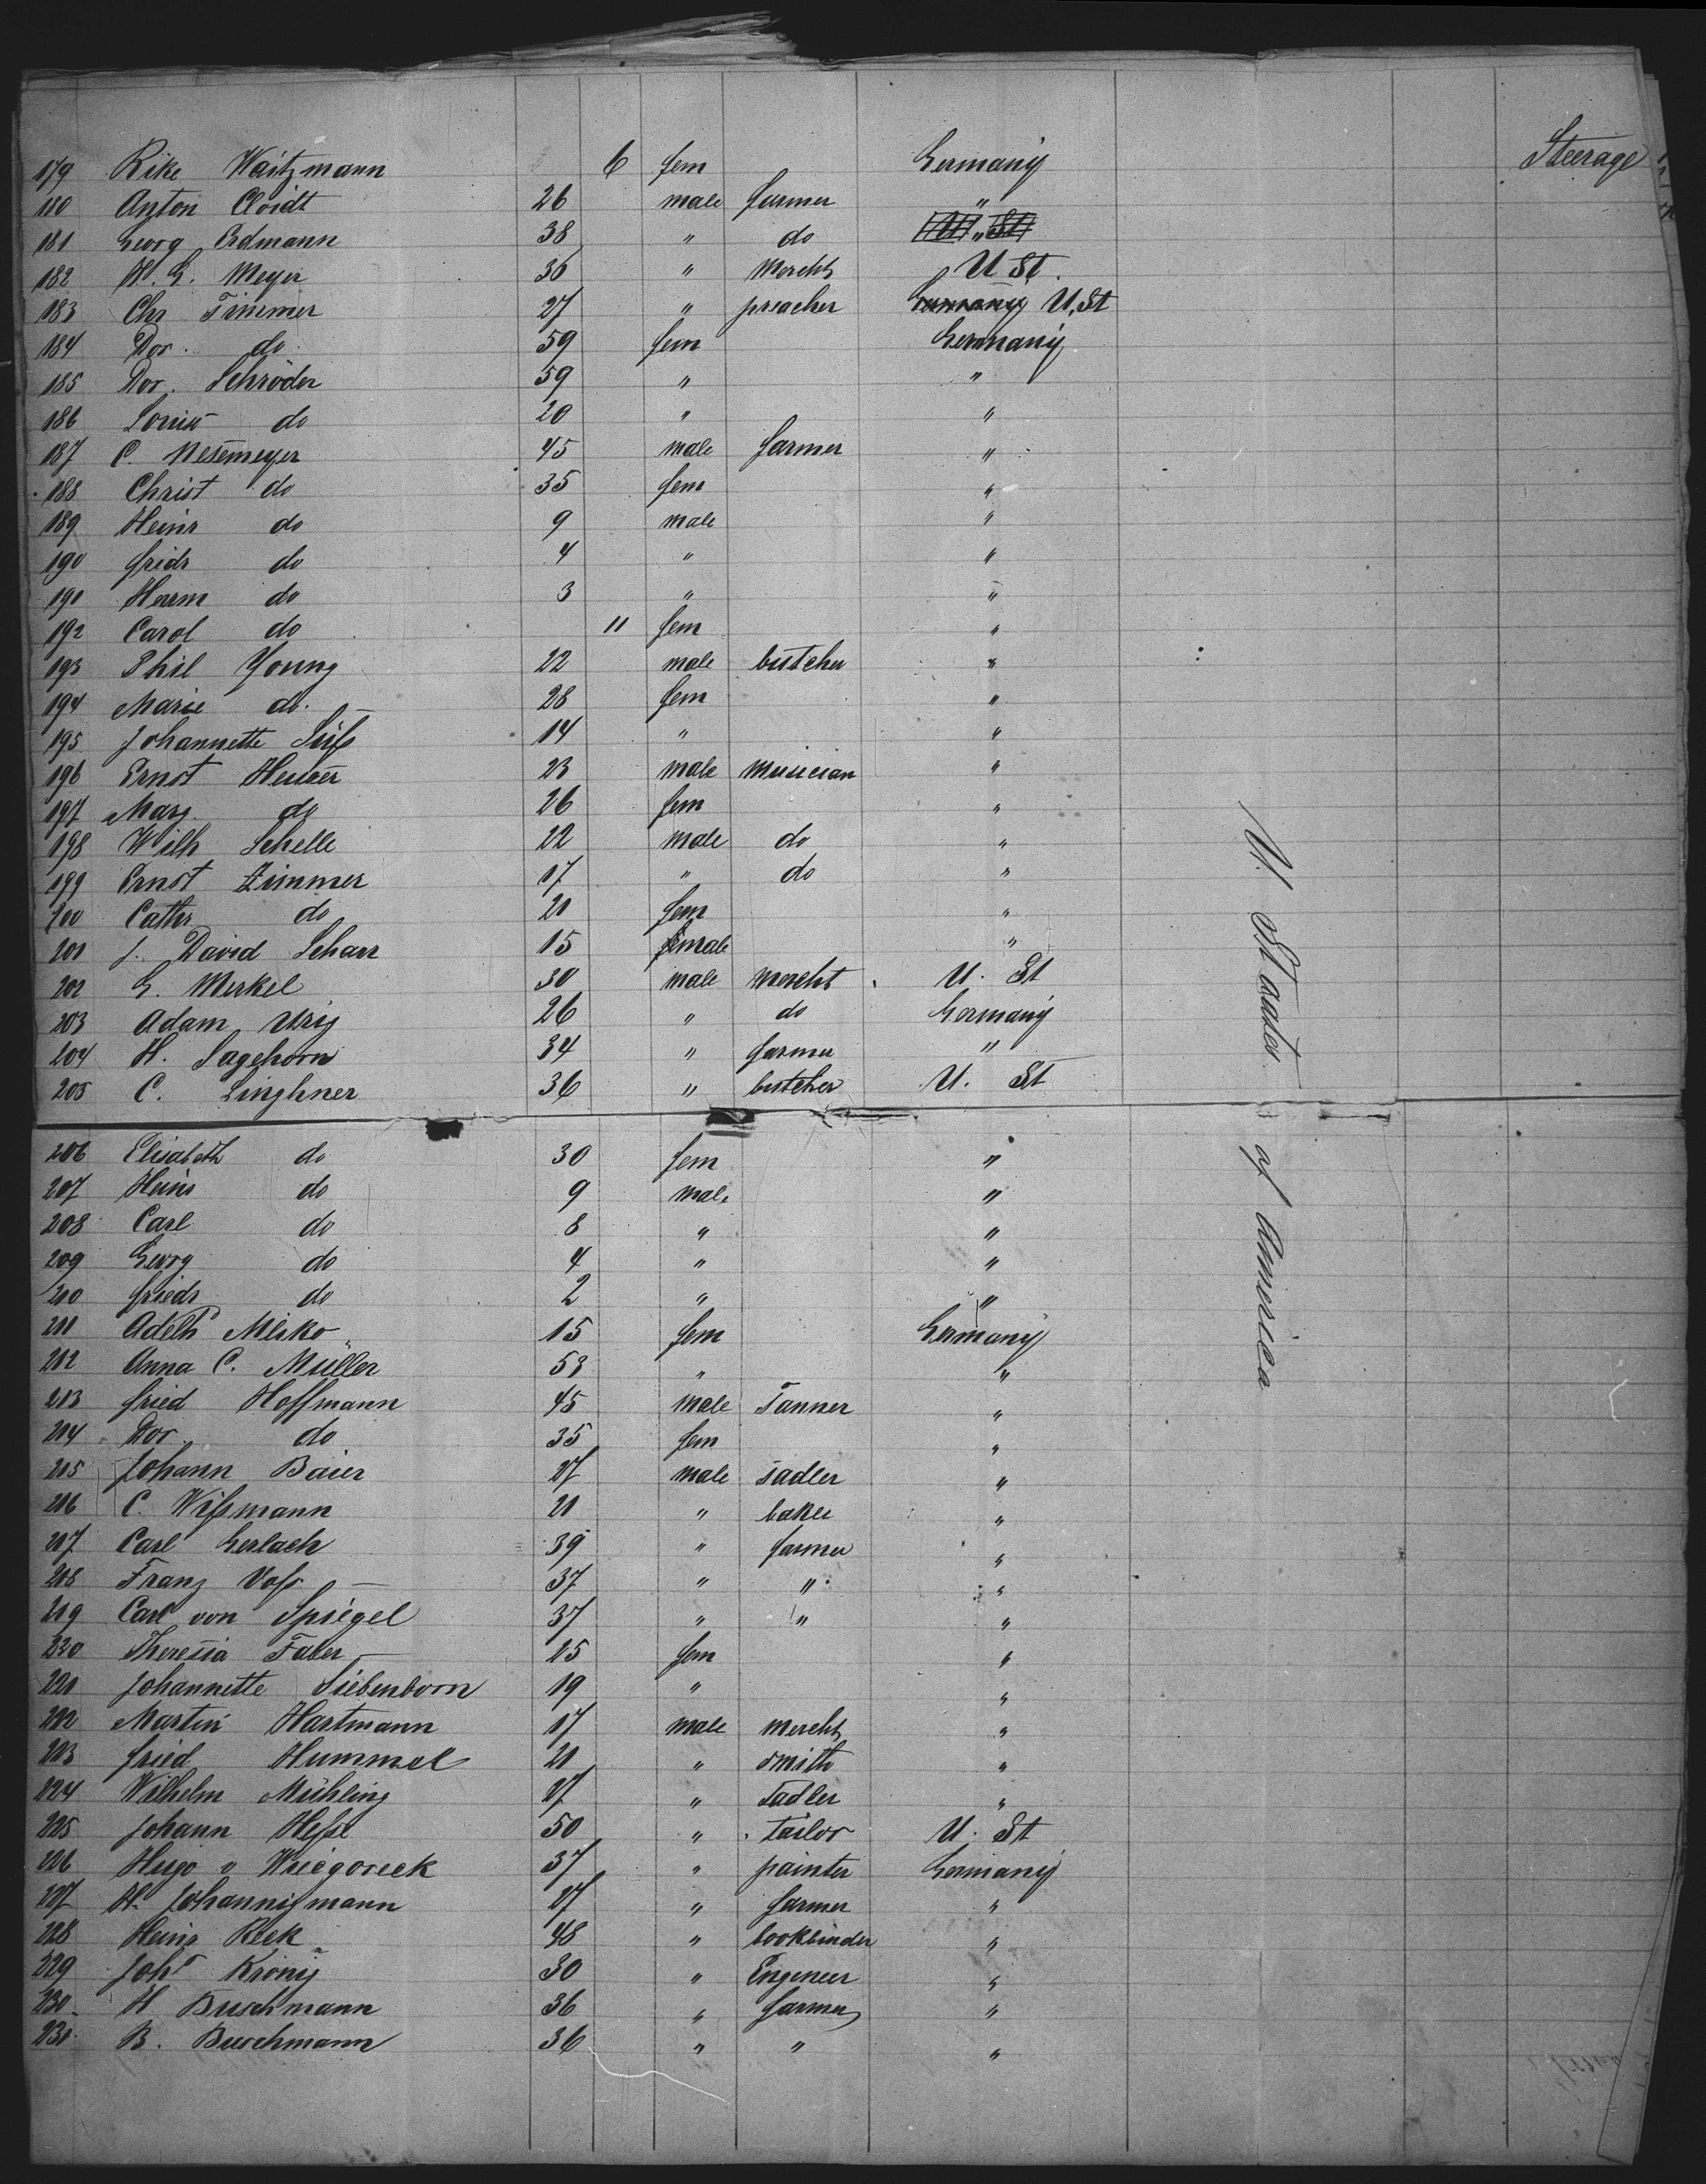 179 Rike Waitzmann 6 fem Germany Steerage
180 Anton Cloidt 26 male farmer "
181 Georg Erdmann 38 " do "
182 H. G. Meyer 36 " Mercht U St.
183 Chr Timmer 27 " preacher Germany U. St
184 Dor. do 59 fem Germany
185 Dor. Schröder 59 " "
186 Louise do 20 " "
187 C. Nesemeyer 45 male farmer "
188 Christ do 35 fem "
189 Heinr do 9 male "
190 Friedr do 4 " "
191 Herrm do 3 " "
192 Carol do 11 fem "
193 Phil Young 22 male butcher "
194 Marie do. 28 fem "
195 Johannette Süß 14 " "
196 Ernst 23 male Musician "
197 Marg. do 26 fem "
198 Wilh Schelle 22 male do "
199 Ernst Zimmer 17 " do "
200 Cathr do 21 fem "
201 J. David Scharr 15 male "
202 G. Merkel 30 male mercht U. St
203 Adam Ury 26 " do Germany
204 H. Sagehorn 34 " farmer "
205 C. Linghner 36 " butcher U. St
206 Elisabeth do 30 fem "
207 Heinr do 9 male "
208 Carl do 8 " "
209 Georg do 4 " "
210 Friedr do 2 " "
211 Adelh Misko 15 fem Germany
212 Anna C. Müller 53 " "
213 Fried Hoffmann 45 male Tanner "
214 Dor. do 35 fem "
215 Johann Baier 27 male sadler "
216 C. Wißmann 21 " baker "
217 Carl Gerlach 39 " farmer "
218 Franz Voß 37 " " "
219 Carl von Spiegel 37 " " "
220 Theresia Faber 25 fem "
221 Johannette Siebenborn 19 " "
222 Martin Hartmann 17 male mercht "
223 Fried Hummel 21 " smith "
224 Wilhelm Mühling 27 " Sadler "
225 Johann Heße 50 " tailor U. St
226 Hugo v Wiegoreck 37 " painter Germany
227 H. Johannigmann 27 " farmer "
228 Heinr Rick 48 " bookbinder "
229 Johs Kronig 30 " Engeneer "
230 H Buschmann 36 " farmer "
231 B. Buschmann 36 " " "
U. Staates of America